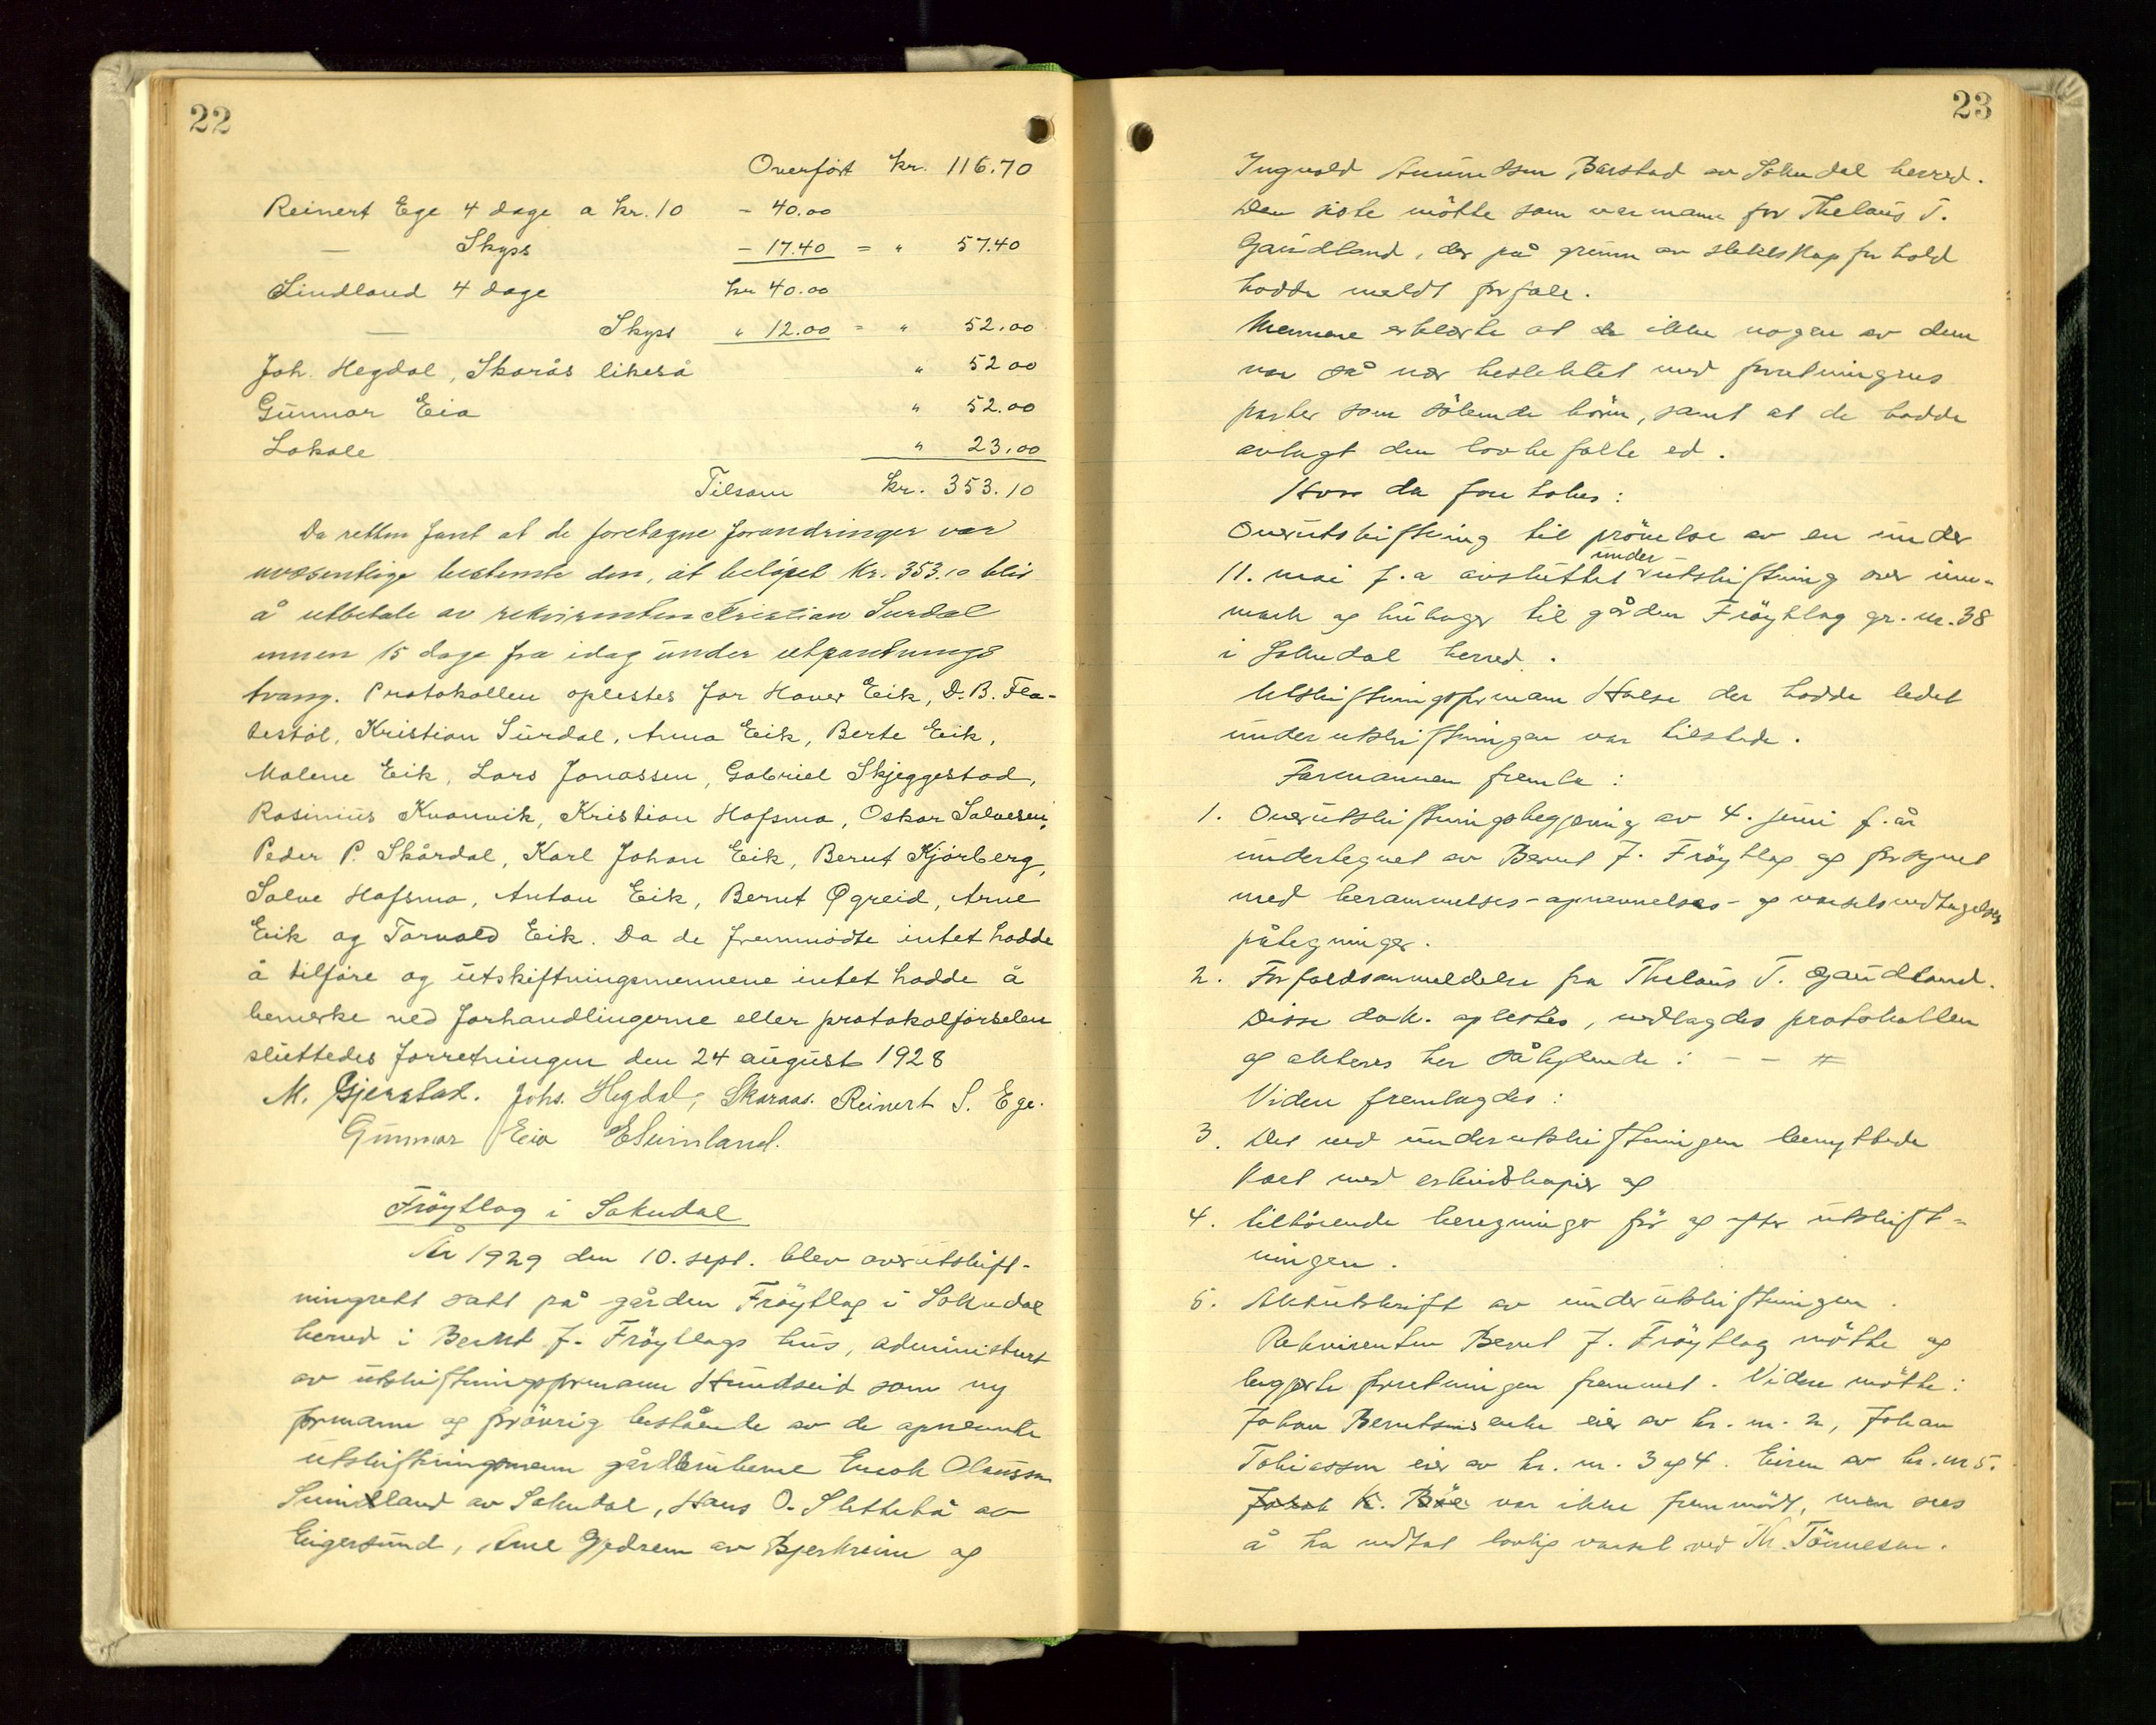 22
Overført kr. 116.70
Reinert Ege 4 dage a kr. 10 - 40.00
— Skyss - 17.40 = " 57.40
Lindland 4 dage kr 40.00
— Skyss " 12.00 = " 52.00
Joh. Hegdal, Skarås likeså " 52 00
Gunnar Eia " 52.00
Lokale " 23.00
Tilsam kr. 353.10
Da retten fant at de foretagne forandringer var
uvæsentlige bestemte den, at beløpet kr. 353.10 blir
å utbetale av rekvirenten Kristian Surdal
innen 15 dage fra idag under utpantnings
tvang. Protokollen oplestes for Haver Eik, D. B. Fla-
testøl, Kristian Surdal, Anna Eik, Berte Eik,
Malene Eik, Lars Jonassen, Gabriel Skjeggestad,
Rasinius Kvanvik, Kristian Hafsmo, Oskar Salvesen,
Peder P. Skårdal, Karl Johan Eik, Bernt Kjørberg,
Salve Hafsmo, Anton Eik, Bernt Øgreid, Arne
Eik og Torvald Eik. Da de fremmødte intet hadde
å tilføre og utskiftningsmennene intet hadde å
bemerke ved forhandlingerne eller protokolførselen
sluttedes forretningen den 24 august 1928
M. Gjerstad. Johs. Hegdal, Skaraas. Reinert S. Ege.
Gunnar Eia
Frøytlog i Sokndal
År 1929 den 10. sept. blev overutskift-
ningrett satt på gården Frøytlog i Sokndal
herred i Bernt J. Frøytlogs hus, administrert
av utskiftningsformann Hundseid som ny
formann og forøvrig bestående av de opnevnte
utskiftningsmenn gårdbrukerne Enok Olaussen
av Sokndal, Hans O. Slettebø av
Eigersund, Arne Gjedrem av Bjerkreim og
23
Ingvald Barstad av Sokndal herred.
Den siste møtte som varmann for Thelaus T.
Gaudland, der på grunn av slektskapforhold
hadde meldt forfall.
Mennene erklærte at de ikke nogen av dem
var så nær beslektet med forretningens
parter som sølemde børn, samt at de hadde
avlagt den lovbefalte ed.
Hvor da foretokes:
Overutskiftning til prøvelse av en under
11. mai f. a avsluttet under utskiftning over inn-
mark og til gården Frøytlog gr. nr. 38
i Sokndal herred.
Utskiftningsformann Halse der hadde ledet
underutskiftningen var tilstede.
Formannen fremla:
1. Overutskiftningsbegjæring av 4. juni f. år
undertegnet av Bernt J. Frøytlog og forsynet
med berammelses- opnevnelses- og varselsvedtagelses
påtegninger.
2. Forfaldsanmeldelse fra Thelaus T. Gaudland.
Disse dok. oplestes, vedlagdes protokollen
og akteres her sålydende: - - #
Viden fremlagdes:
3. Det ved underutskiftningen benyttede
kart med
4. tilhørende beregninger før og efter utskift-
ningen.
5. Aktutskrift av underutskiftningen.
Rekvirenten Bernt J. Frøytlog møtte og
begjærte forretningen fremmet. Videre møtte:
Johan Berntsens enke eier av br. nr. 2, Johan
Tobiassen eier av br. nr. 3 og 4. Eieren av br. nr 5.
Jakob K. Bøe var ikke fremmødt, men sees
å ha vedtat lovlig varsel ved Th. Tønnesen.